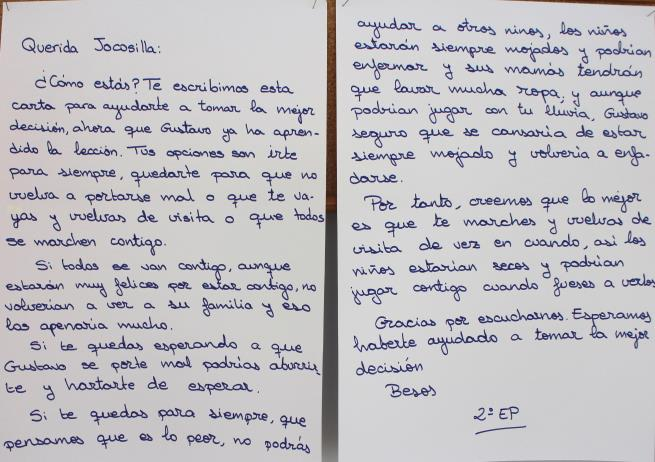 Querida Jocosilla:
¿Cómo estás? Te escribimos esta
carta para ayudarte a tomar la mejor
decisión, ahora que Gustavo ya ha apren-
dido la lección. Tus opciones son irte
para siempre, quedarte para que no
vuelva a portarse mal o que te va-
yas y vuelvas de visita o que todos
se marchen contigo.
Si todos se van contigo, aunque
estarán muy felices por estar contigo, no
volverian a ver a su familia y eso
los apenaria mucho.
Si te quedas esperando a que
Gustavo se porte mal podrías aburrir
te y hartarte de esperar.
Si te quedas para siempre, que
pensamos que es lo peor, no podrás
ayudar a otros ninos, los niños
estarán siempre mojados y podrian
enfermar y sus mamás tendrán
que lavar mucha ropa, y aunque
podrian jugar con tu lluvia, Gustavo
seguro que se cansaria de estar
siempre mojado y volveria a enfa-
darse.
Por tanto, creemos que lo mejor
es que te marches y vuelvas de
visita de vez en cuando, asi los
niños estarian secos y podrian
jugar contigo cuando fueses a verlos
Gracias por escucharnos. Esperamos
haberte ayudado a tomar la mejor
decisión
Besos
2º EP